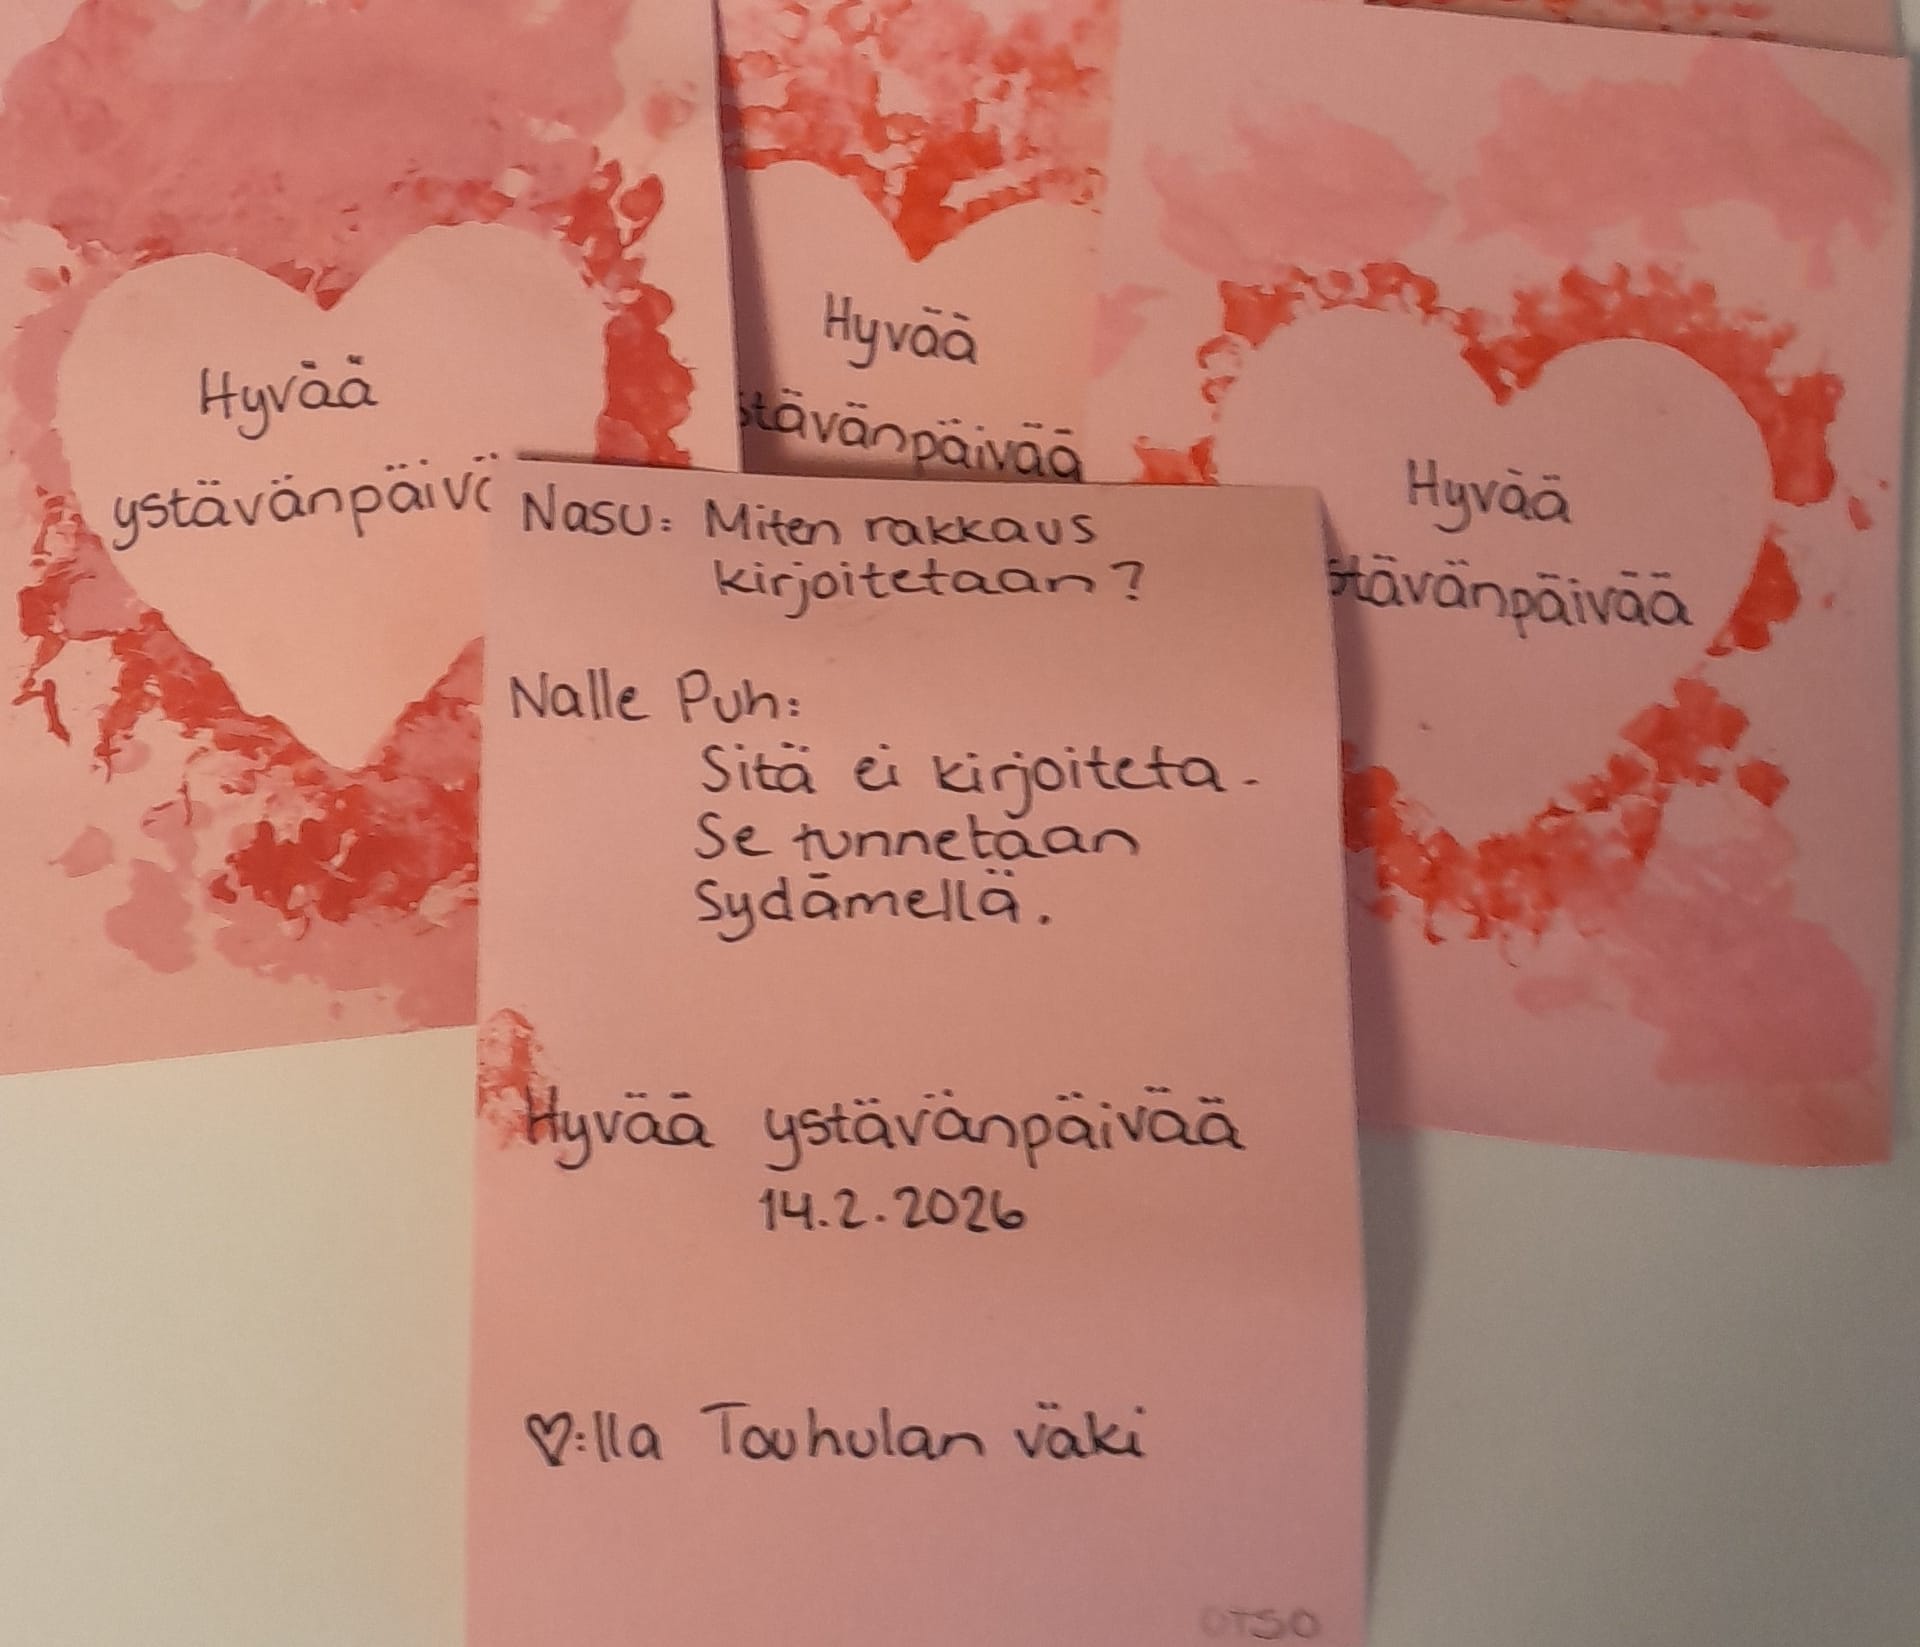 Hyvää
ystävänpäivä
Hyvää
stävänpäivää
Hyvää
stävänpäivää
Nasu: Miten rakkaus
kirjoitetaan?
Nalle Puh:
Sitä ei kirjoiteta.
Se tunnetaan
Sydämellä.
Hyvää ystävänpäivää
14.2.2026
♡:lla Touhulan väki
OTSO